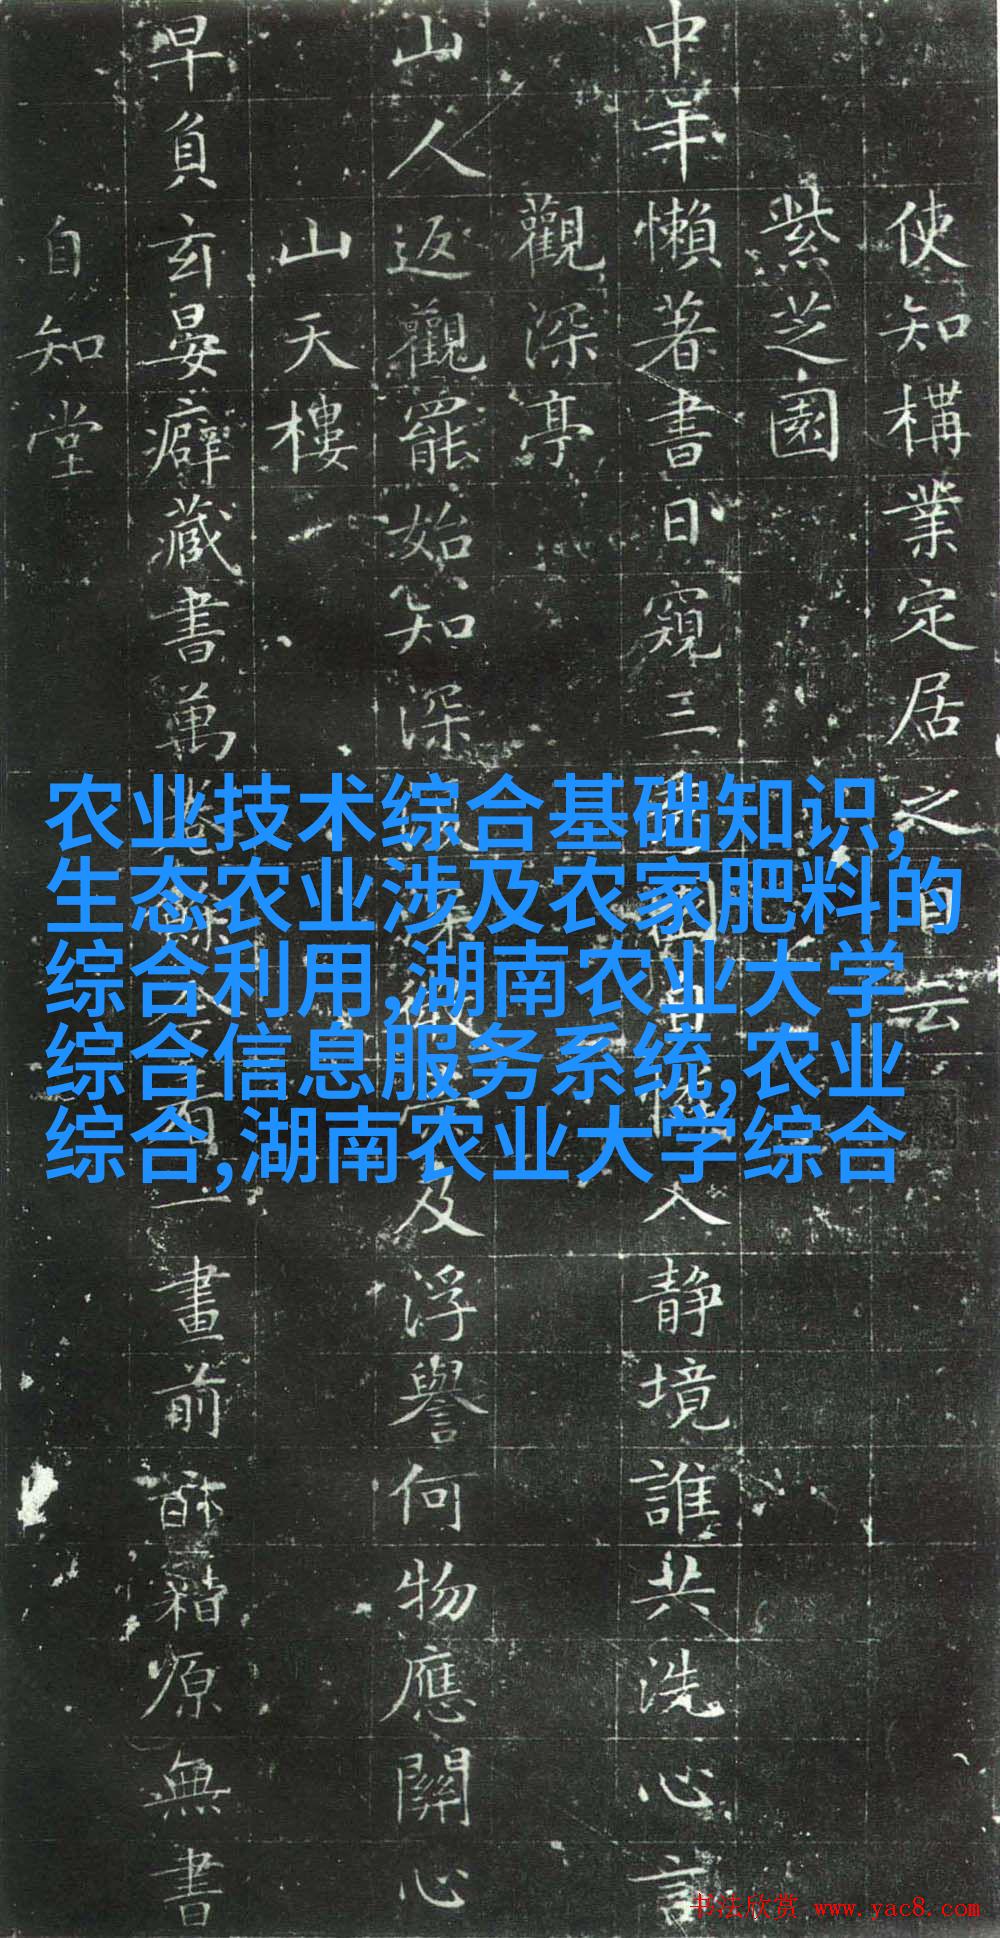 使知構業定居之自云
紫芝園
中年懶著書日窺三
入静境誰共洗心言
觀深亭
山人返觀罷始知深
及浮譽何物應關心
山天樓
早負玄晏癖藏書萬
一畫前
籍原無書
自知堂
农业技术综合基础知识,
生态农业涉及农家肥料的
综合利用,湖南农业大学
综合信息服务系统,农业
综合,湖南农业大学综合
书法欣赏 www.yac8.com